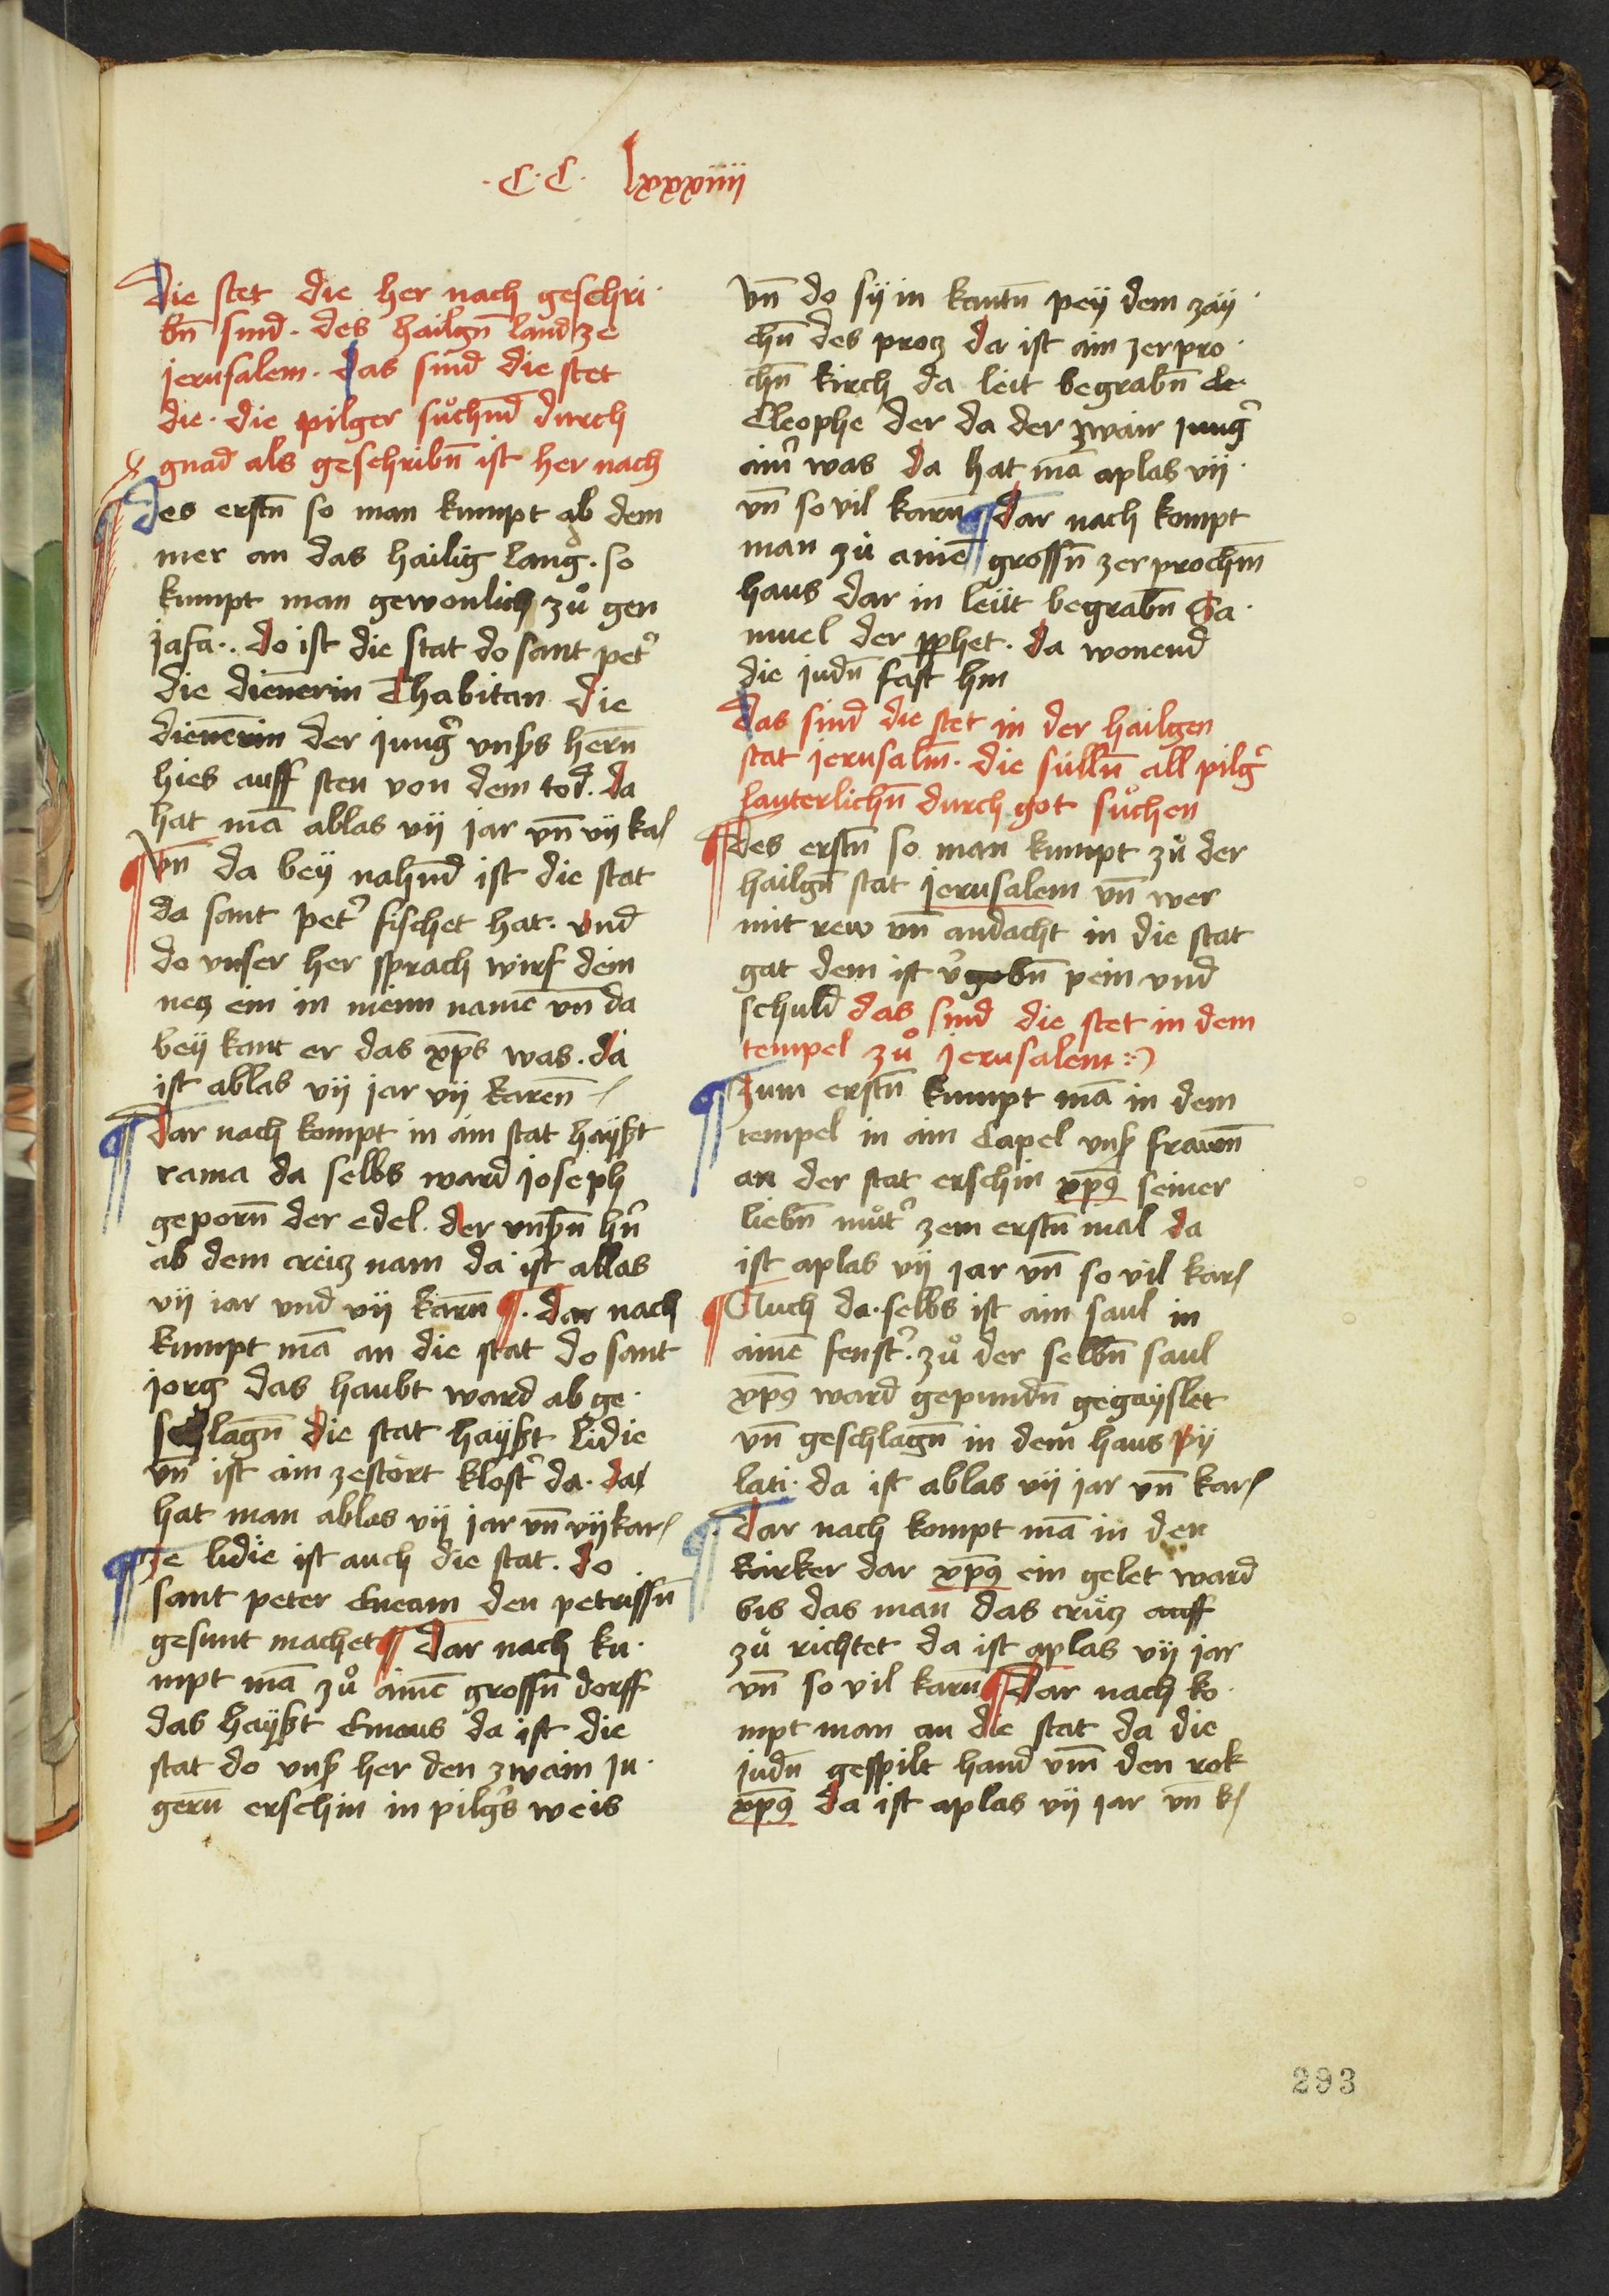 ·C·C· lxxxviiii
Die stet die her nach geschri·
bn̄ sind · des hailgn̄ landz ze
jerusalem · das sind die stet
die · die pilger sůchn̄d durch
gnad als geschribn̄ ist her nach
¶ Des erstn̄ so man kumpt ab dem
mer an das hailig lang · so
kumpt man gewonlich zů gen
jafa ·· do ist die stat do sant pet᷑
die dienerin Thabitan die
dienerin der jung᷑ vnß̄s hern̄
hies auff sten von dem tod · da
hat mā ablas vij jar vn̄ vij kar
¶ Vn̄ da beÿ nahn̄d ist die stat
da sant pet᷑ fischet hat · vnd
do vnser her sprach wirf dein
necz ein in meinn namē vn̄ da
beÿ kant er das xp̄s was · da
ist ablas vij jar vij karen̄
¶ Dar nach kompt in ain stat haÿßt
rama da selbs ward joseph
geporn̄ der edel · der vnßn̄ hr̄n
ab dem creicz nam da ist ablas
vij iar vnd vij karn̄ ¶ · Dar nach
kumpt mā an die stat do sant
jorg das haubt ward ab ge·
schlagn̄ die stat haÿßt Lidie
vn̄ ist ain zestört klost᷑ da · da
hat man ablas vij jar vn̄ vij kar
¶ Ze lidie ist auch die stat · do
sant peter Eneam den petrissn̄
gesunt machet ¶ Dar nach ku·
mpt mā zů ainē grossn̄ dorff
das haÿßt Emaus da ist die
stat do vnß her den zwain ju·
gern̄ erschin in pilg᷑s weis
Vn̄ do sÿ in kantn̄ peÿ dem zäÿ·
chn̄ des procz da ist ain zerpro·
chn̄ kirch da leit begrabn̄ de·
Cleophe der da der zwair jung᷑
ain᷑ was da hat mā aplas vij·
vn̄ so vil karn̄ ¶ Dar nach kompt
man zů ainē grossn̄ zerprochn̄
haus dar in leüt begrabn̄ Sa·
muel der pp̄het · da wonend
die judn̄ fast hin
Das sind die stet in der hailgen
stat jerusalm̄ · die sülln̄ all pilg᷑
lauterlichn̄ durch got sůchen
¶ Des erstn̄ so man kumpt zů der
hailgn̄ stat jerusalem vn̄ wer
mit rew vn̄ andacht in die stat
gat dem ist v᷑gebn̄ pein vnd
schuld das sind die stet in dem
tempel zů jerusalem :~)
¶ Zum erstn̄ kumpt mā in dem
tempel in ain Capel vnß frawn̄
an der stat erschin xp̄9 seiner
liebn̄ můt᷑ zem erstn̄ mal da
ist aplas vij jar vn̄ so vil kar
¶ Auch da · selbs ist ain saul in
ainē fenst᷑ · zů der selbn̄ saul
xp̄9 ward gepundn̄ gegaÿslet
vn̄ geschlagn̄ in dem haus pÿ
lati · da ist ablas vij jar vn̄ kar
¶ Dar nach kompt mā in den
karker dar xp̄9 ein gelet ward
bis das man das crücz auff
zů richtet da ist aplas vij jar
vn̄ so vil karn̄ ¶ Dar nach ko·
mpt man an die stat da die
judn̄ gespilt hand vm̄ den rok
xp̄9 da ist aplas vij jar vn̄ k
293